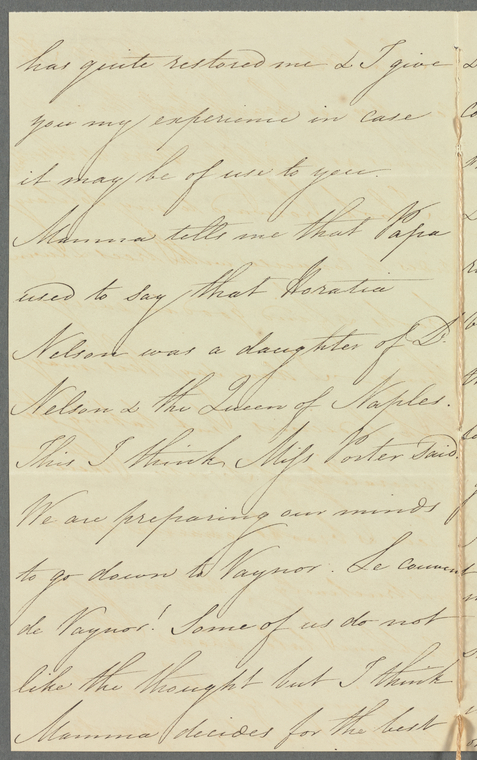 has quite restored me & I give
you my experience in case
it may be of use to you.
Mamma tells me that Papa
used to say that Horatia
Nelson was a daughter of Dr
Nelson & the Queen of Naples.
This I think Miss Porter said.
We are preparing our minds
to go down to Vaynor. Le couvent
de Vaynor! Some of us do not
like the thought but I think
Mamma decides for the best